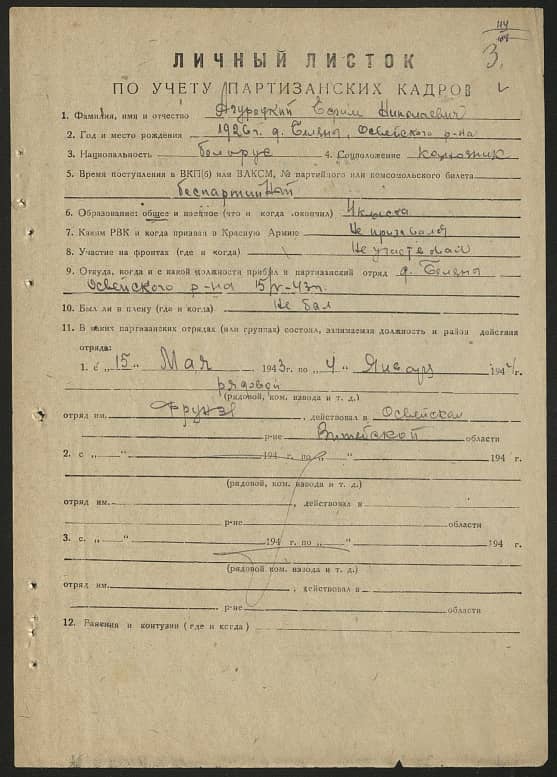 3.
ЛИЧНЫЙ ЛИСТОК
ПО УЧЕТУ ПАРТИЗАНСКИХ КАДРОВ
1. Фамилия, имя и отчество Ефим Николаевич
2. Год и место рождения 1926 г. д. Беляны, Освейского р-на
3. Национальность белорус 4. Соцположение колхозник
5. Время поступления в ВКП(б) или ВЛКСМ, № партийного или комсомольского билета
беспартийный
6. Образование: общее и военное (что и когда окончил) 4 класса
7. Каким РВК и когда призван в Красную Армию Не призывался
8. Участие на фронтах (где и когда) Не участвовал
9. Откуда, когда и с какой должности прибыл в партизанский отряд д. Беляны
Освейского р-на 15/V-43г.
10. Был ли в плену (где и когда) Не был
11. В каких партизанских отрядах (или группах) состоял, занимаемая должность и район действия
отряда:
1. с „15“ Мая 1943 г. по „4“ Января 1944 г.
рядовой
(рядовой, ком. взвода и т. д.)
отряд им. Фрунзе, действовал в Освейском
р-не Витебской области
2. с „ “ 194 г. по „ “ 194 г.
(рядовой, ком. взвода и т. д.)
отряд им. , действовал в
р-не области
3. с „ “ 194 г. по „ “ 194 г.
(рядовой ком. взвода и т. д.)
отряд им. , действовал в
р-не области
12. Ранения и контузии (где и когда)